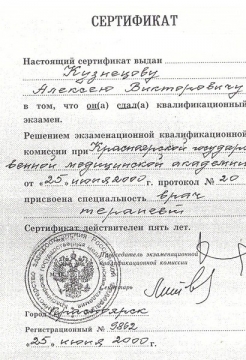 СЕРТИФИКАТ
Настоящий сертификат выдан
Кузнецову
Алексею Викторовичу
в том, что он(а) сдал(а) квалификационный
экзамен.
Решением экзаменационной квалификационной
комиссии при Красноярской государст
венной медицинской академии
от «25» июня 2000 г. протокол № 20
присвоена специальность врач
терапевт
Сертификат действителен пять лет.
Председатель экзаменационной
квалификационной комиссии
Секретарь
Город Красноярск
Регистрационный № 9862
«25» июня 2000 г.